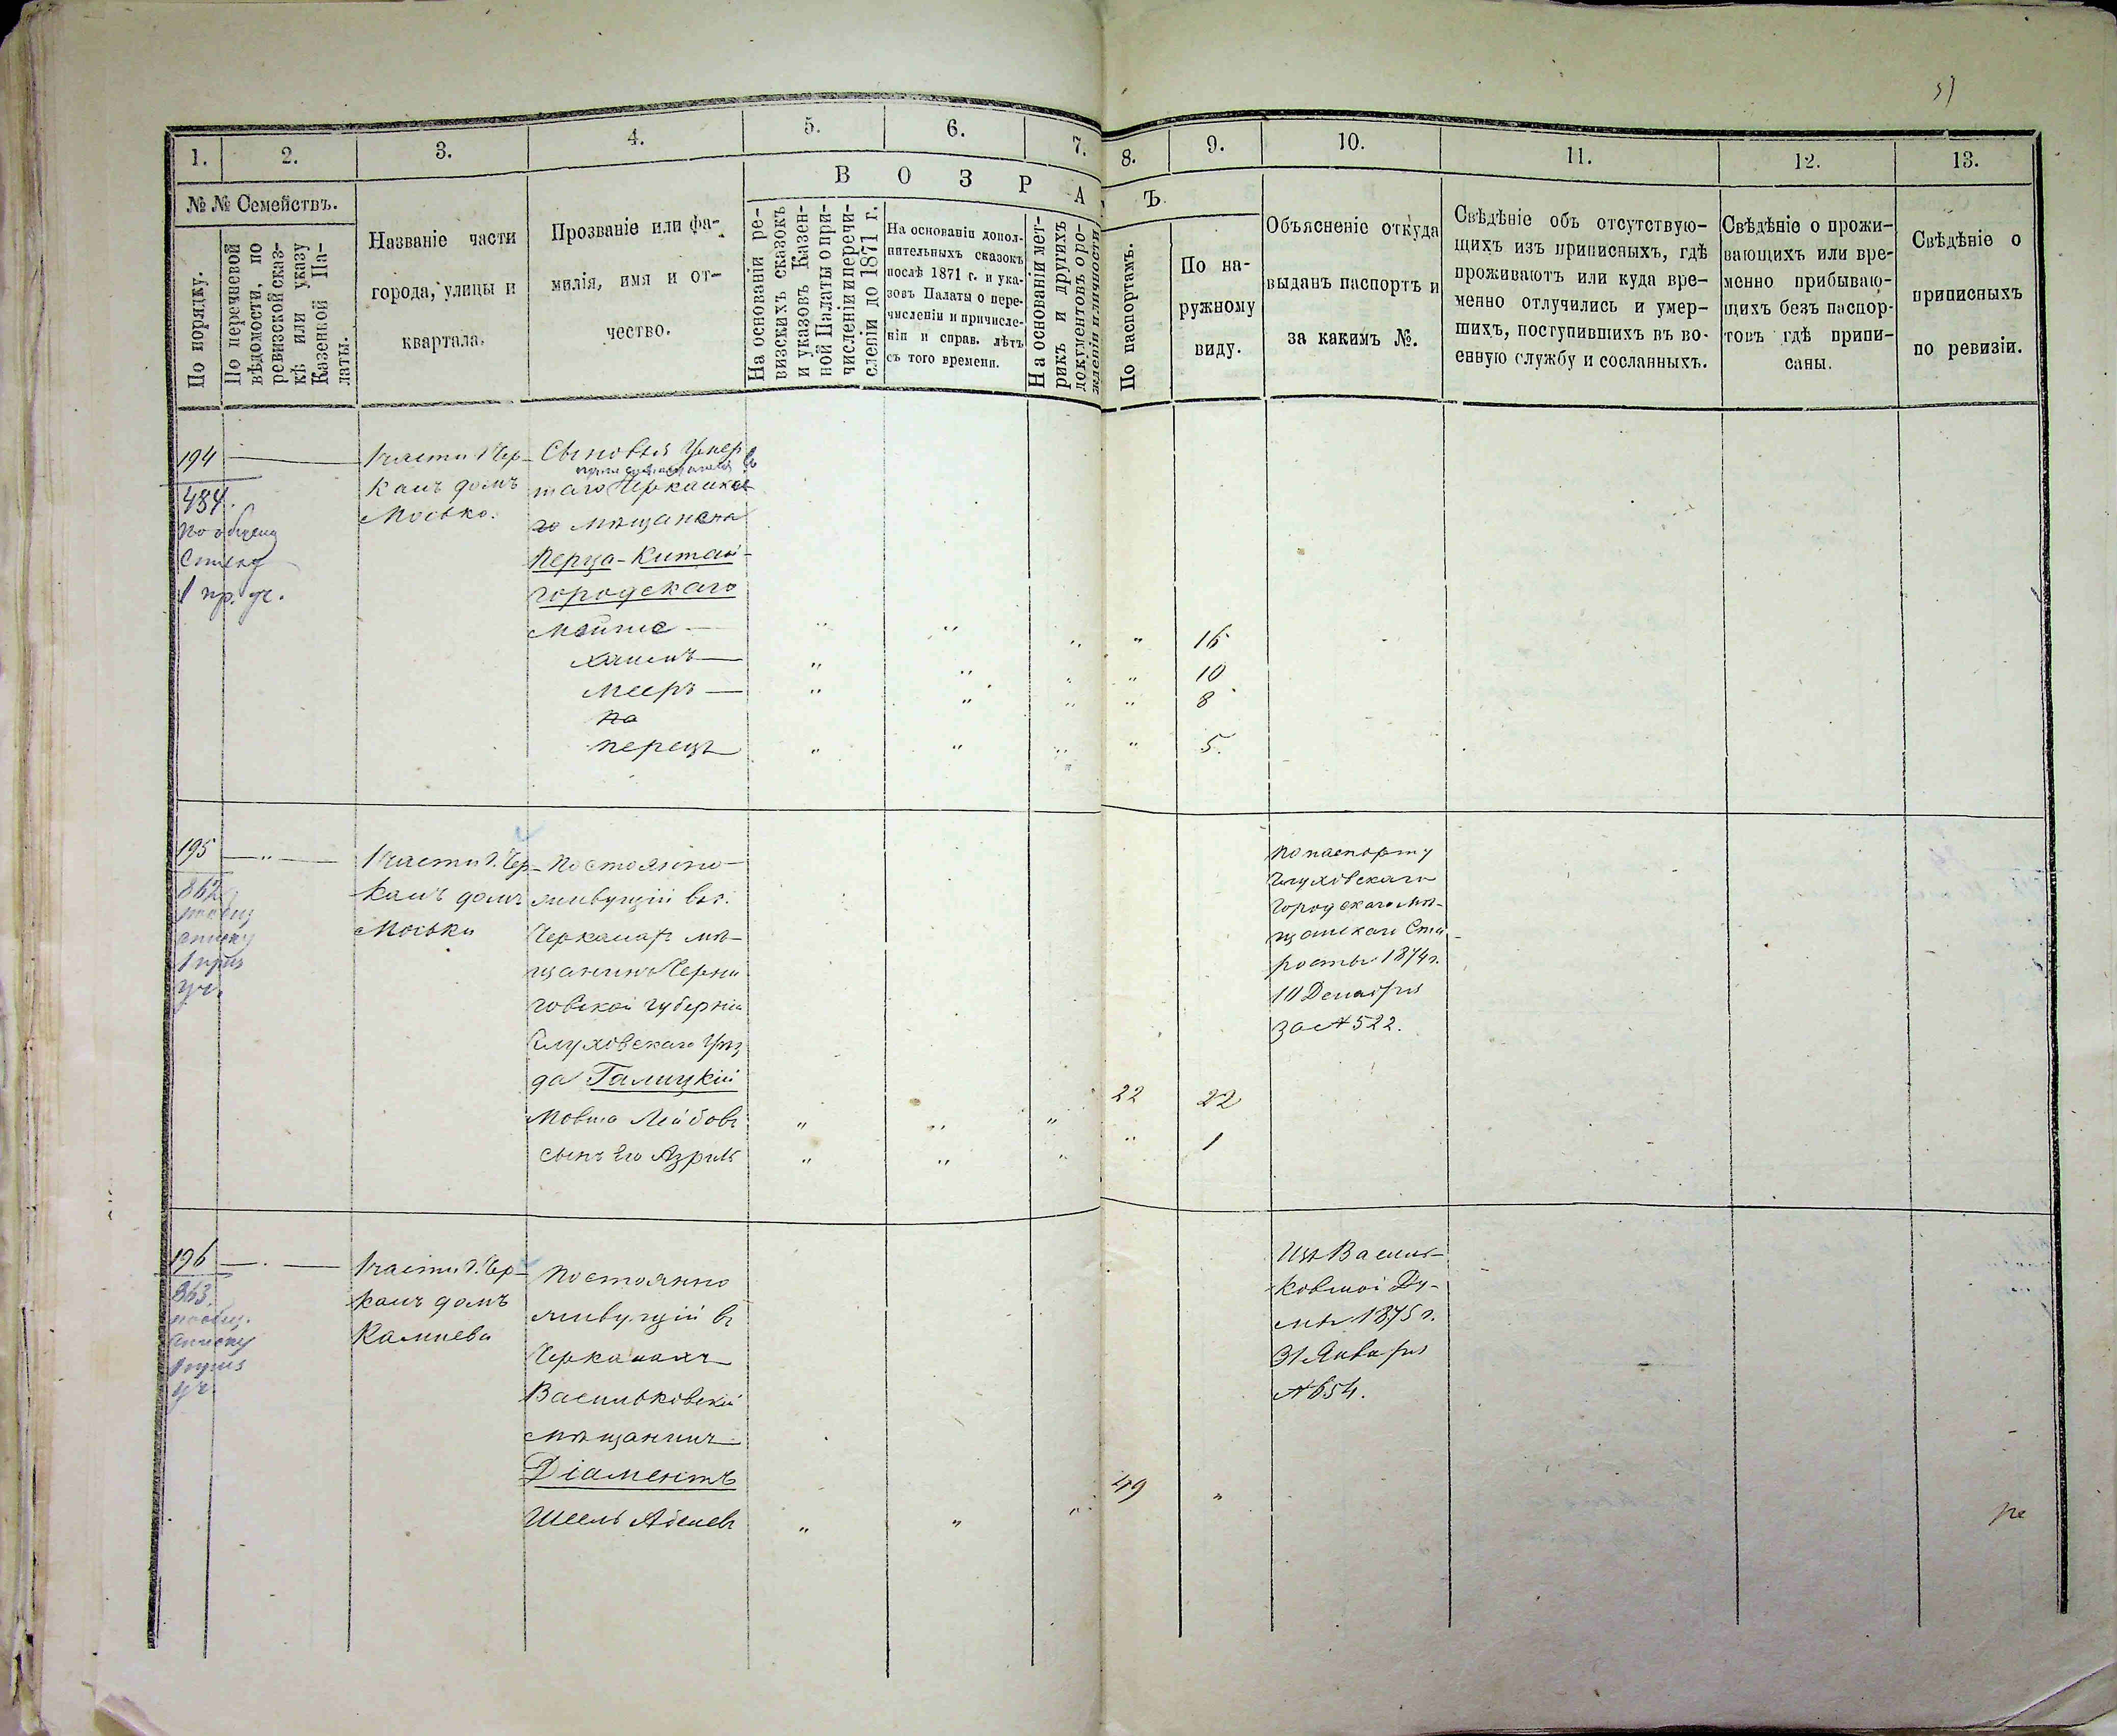 1.
2.
3.
4.
5.
6.
7.
8.
9.
10.
11.
12.
13.
№ № Семействъ.
По порядку.
По перечневой
вѣдомости, по
ревизской сказ-
кѣ или указу
Казенной Па-
латы.
Названіе части
города, улицы и
квартала.
Прозваніе или фа-
милія, имя и от-
чество.
В О З Р А
На основаніи ре-
визскихъ сказокъ
и указовъ Казен-
ной Палаты о при-
численіи и перечи-
сленіи до 1871 г.
На основаніи допол-
нительныхъ сказокъ
послѣ 1871 г. и ука-
зовъ Палаты о пере-
численіи и причисле-
ніи и справ. лѣтъ
съ того времени.
На основаніи мет-
рикъ и другихъ
документовъ о ро-
жденіи и личности.
Ъ.
По паспортамъ.
По на-
ружному
виду.
Объясненіе откуда
выданъ паспортъ и
за какимъ №.
Свѣдѣніе объ отсутствую-
щихъ изъ приписныхъ, гдѣ
проживаютъ или куда вре-
менно отлучились и умер-
шихъ, поступившихъ въ во-
енную службу и сосланныхъ.
Свѣдѣніе о прожи-
вающихъ или вре-
менно прибываю-
щихъ безъ паспор-
товъ гдѣ припи-
саны.
Свѣдѣніе о
приписныхъ
по ревизіи.
194
484.
1 пр. уч.
1 части Чер-
касъ домъ
Моські.
Сыновья умер
шаго Черкаска
го мѣщанина
Перца-Китай-
городскаго
Мойше
Хаимъ
Мееръ
по
Перецъ
16
10
8
5.
195
862
списку
1 приз
уч.
1 части г. Чер-
касъ домъ
Моськи
Постоянно
живущій въ г.
Черкасахъ мѣ-
щанинъ Черни
говской губерніи
Глуховскаго Уѣз
да Галицкій
Мовша Лейбовъ
сынъ его Азриль
22
22
1
По паспорту
Глуховскаго
Городскаго Мѣ-
щанскаго Ста-
росты 1874 г.
10 Декабря
за № 522.
196
863.
по общ.
списку
1 приз
уч.
1 части г. Чер-
касъ домъ
Калиева
Постоянно
живущій въ
Черкасахъ
Васильковскій
мѣщанинъ
Діаментъ
Шеель Абелевъ
49
Изъ Василь-
ковской Ду-
мы 1875 г.
31 Января
№ 654.